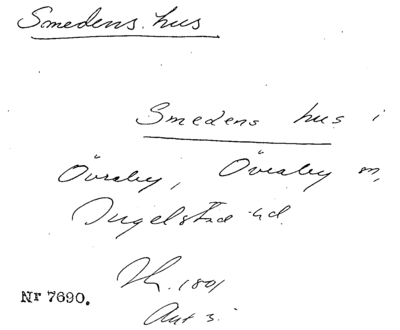 Smedens hus
Smedens hus i
Övraby, Övraby sn,
Ingelstad hd.
Th. 1801
Akt 3.
Nr 7690.